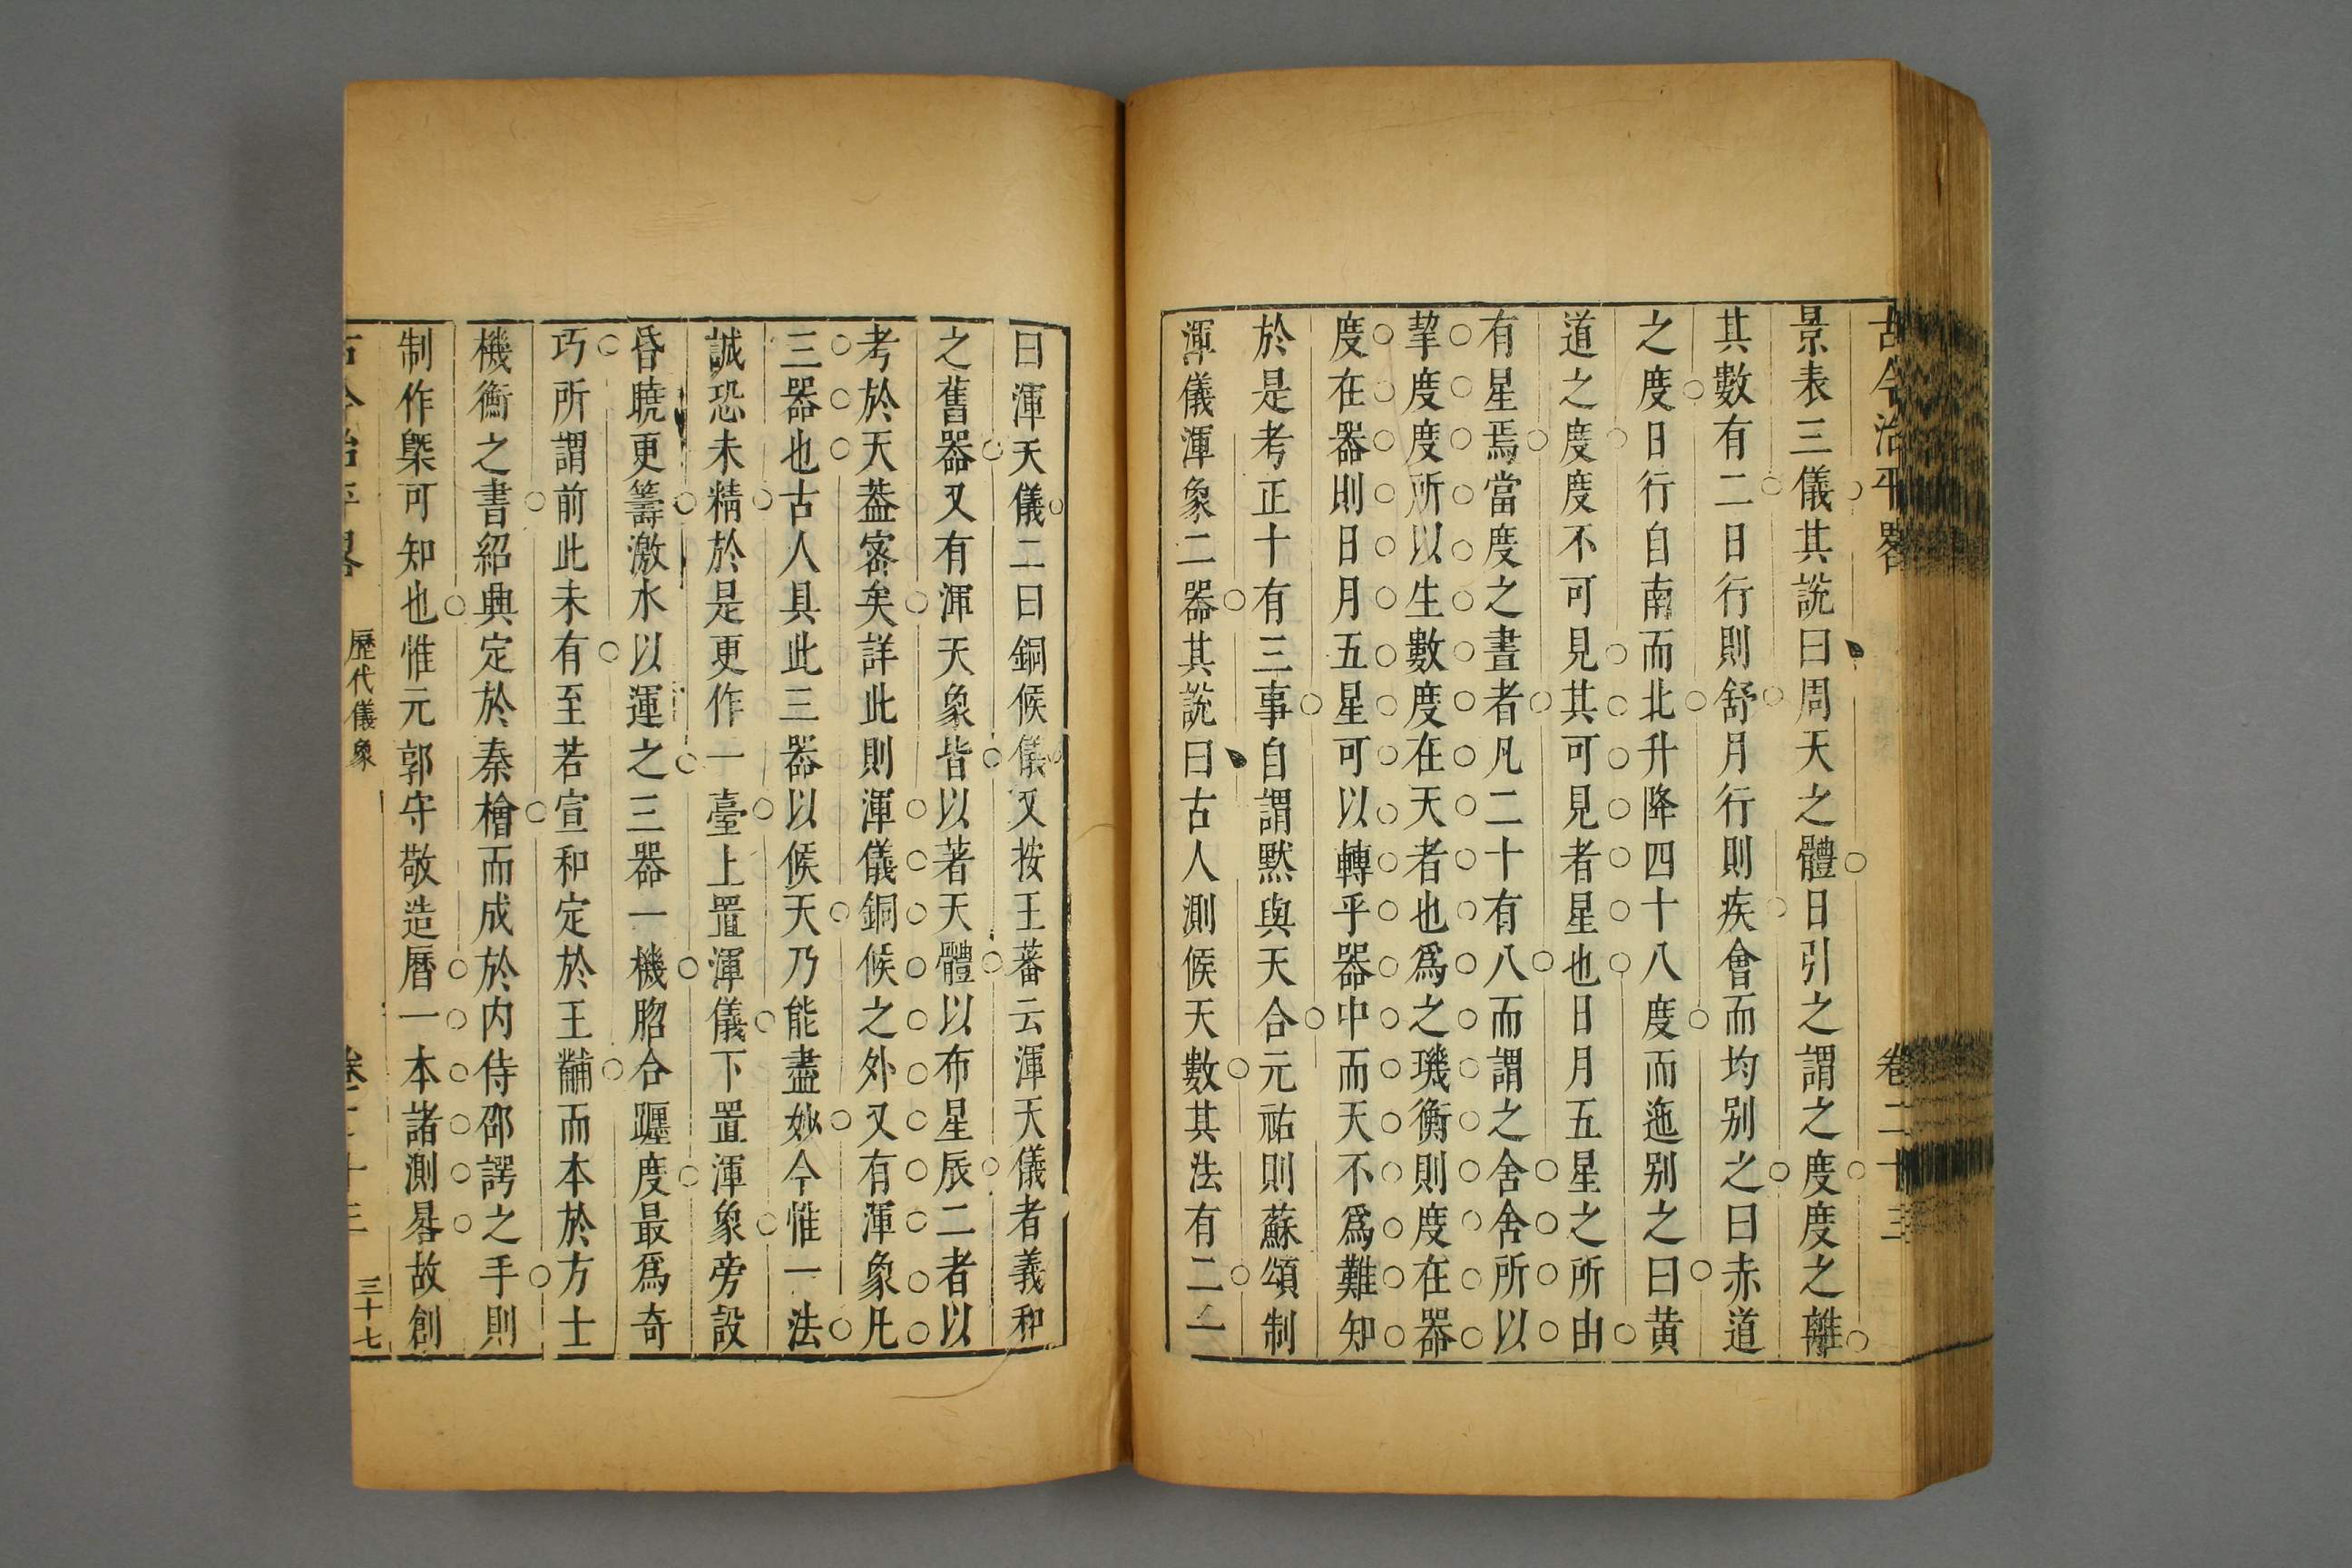 古今治平畧 卷二十三
景表三儀其説曰周天之體日引之謂之度度之離
其數有二日行則舒月行則疾會而均别之曰赤道
之度日行自南而北升降四十八度而迤别之曰黄
道之度度不可見其可見者星也日月五星之所由
有星焉當度之畫者凡二十有八而謂之舍舍所以
挈度度所以生數度在天者也爲之璣衡則度在器
度在器則日月五星可以轉乎器中而天不爲難知
於是考正十有三事自謂黙與天合元祐則蘇頌制
渾儀渾象二器其説曰古人測候天數其法有二一
曰渾天儀二曰銅候儀又按王蕃云渾天儀者羲和
之舊器又有渾天象皆以著天體以布星辰二者以
考於天葢宻矣詳此則渾儀銅候之外又有渾象凡
三器也古人具此三器以候天乃能盡妙今惟一法
誠恐未精於是更作一臺上置渾儀下置渾象旁設
昏曉更籌激水以運之三器一機脗合躔度最爲奇
巧所謂前此未有至若宣和定於王黼而本於方士
機衡之書紹興定於秦檜而成於内侍邵諤之手則
制作槩可知也惟元郭守敬造曆一本諸測晷故創
古今治平畧 歷代儀象 卷二十三 三十七